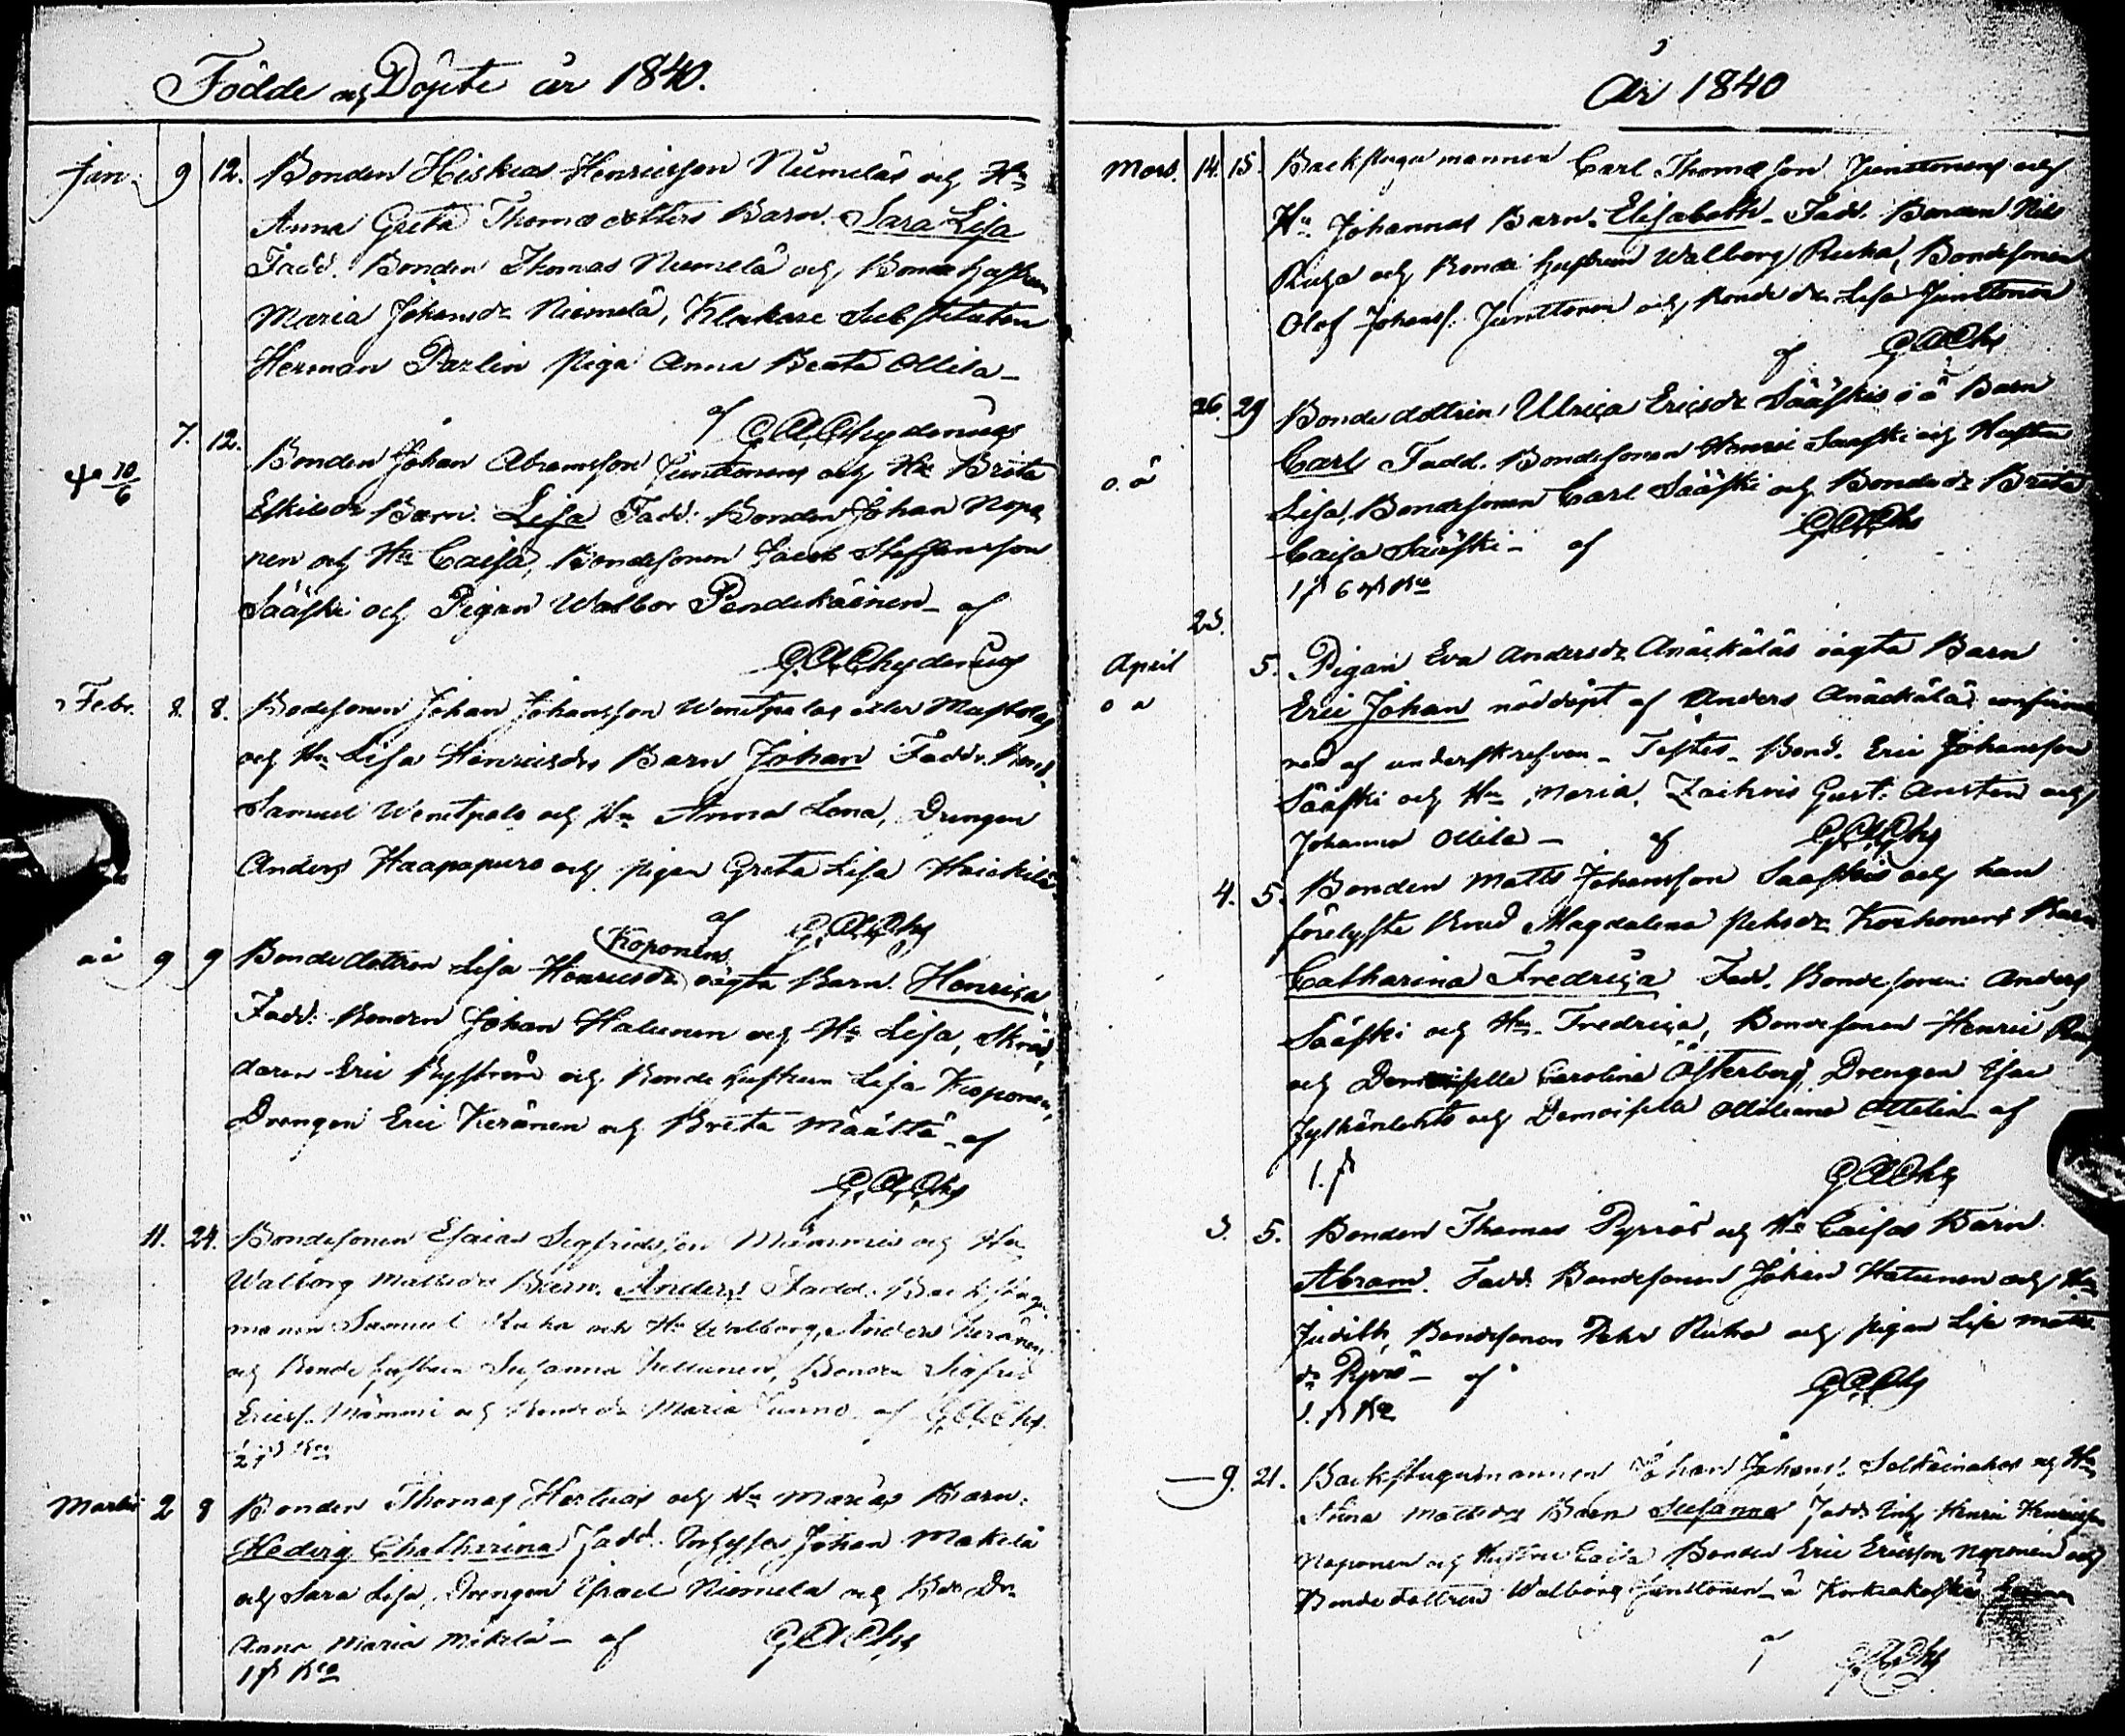 Födde och Döpte år 1840.
Jan. 9 12. Bonden Hiskias Henricsson Niemeläs och Hu
Anna Greta Thomædotters Barn. Sara Lisa
Fadd. Bonden Thomas Niemelä och Bonde hustrun
Maria Johansdr Niemelä, Klockare Substituten
Herman Parlin piga Anna Beata Ollila_
af G.A.Chydenius
7. 12. Bonden Johan Abramsson Junttonens och Hu Brita
10/6 Eskilsdr Barn. Lisa Fadd. Bonden Johan Nopo
nen och Hu Caisa, Bondesonen Jacob Steffansson
Sääski och Pigan Walbor Pendikäinen_ af
G.A.Chydenius
Febr. 8. 8. Bodesonen Johan Johansson Wenetpalos eller
och Hu Lisa Henricsdrs Barn Johan Fadd. Bond.
Samuel Wenetpalo och Hu Anna Lena, Drengen
Anders Haapapuro och pigan Greta Lisa Heickilä
af G.A.Chs
oä 9 9 Bondedottren Lisa Henricsdr Koponens oägta Barn. Henrica
Fadd. Bonden Johan Halunen och Hu Lisa, Skräd
daren Eric Byström och Bonde hustrun Lisa Koponen,
Drengen Eric Keränen och Brita Määttä_ af
G.A.Chs
11. 24. Bondesonen Esaias Sigfridsson Mämmis och Hu
Walborg Mattsdrs Barn. Anders Fadd. Backstugu
mannen Samuel Ruha och Hu Walborg, Anders Keränen
och Bonde hustrun Susanna Juttunen, Bonden Sigfrid
Ericss. Mämmi och Bonde dr Maria Junno af G.A.Chs.
Martii 2 8 Bonden Thomas och Hu Marias Barn.
Hedvig Chatharina Fadd. Inhyses Johan Mäkelä
och Sara Lisa, Drengen Israel Niemelä och Bde Dr
Anna Maria Mäkelä_ af G.A.Chs
År 1840
Mars. 14. 15. Backstugumannen Carl Thomæson Junttonens och
Hu Johannas Barn. Elisabeth_ Fadd. Bonden Nils
Ruha och Bonde hustrun Walborg Ruha, Bondesonen
Olof Johanss. Junttonen och Bonde dr Lisa Junttonen
af G.A.Chs
26. 29 Bondedottren Ulrica Ericsdr Sääskis oä Barn
o.ä Carl Fadd. Bondesonen Henric Sääski och Hustru
Lisa, Bondesonen Carl Sääski och Bonde dr Brita
Caisa Sääski_ af G.A.Chs
25.
April 5. Pigan Eva Andersdr Anäckäläs oägta Barn
o ä Eric Johan nöddöpt af Anders Anäckälä, confirme
rad af underskrefven_ Testes_ Bond. Eric Johansson
Sääski och Hu Maria. Gust. Austen och
Johanna Ollila_ af G.A.Chs
4. 5. Bonden Matts Johansson Sääskis och han
förelyste Brud Magdalena Pehrsdr Korhonens Barn
Catharina Fredrica Fadd. Bondesonen Anders
Sääski och Hu Fredrica, Bondesonen Henric
och Demoiselle Carolina Österberg, Drengen Esai
Jylhänlehto och Demoiselle Ottiliana Ottelin af
G.A.Chs
3. 5. Bonden Thomas Pyrrös och Hu Caisas Barn
Abram. Fadd. Bondesonen Johan Halunen och Hu
Judith, Bondesonen Pehr Ruha och pigan Lisa Matts
dr Pyrrö_ af G.A.Chs
9. 21. Backstugumannen Johan Johans. och Hu
Stina Mattsdrs Barn Susanna Fadd. Inhs Henric Henricsson
Noponen och Hustru Caisa Bonden Eric Ericsson Noponen och
Bondedottren Walborg Junttonen_ å Korkiakoski
af G.A.Chs